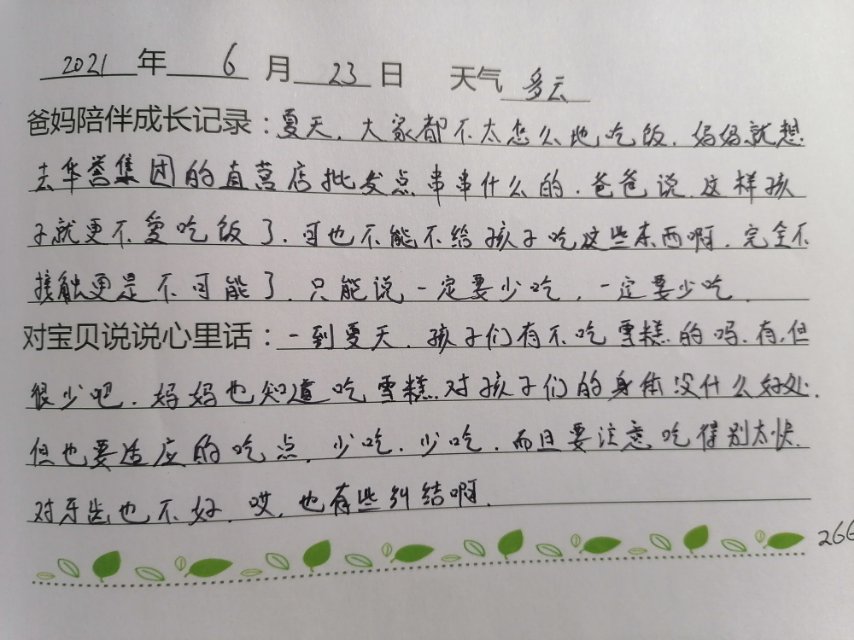 2021年 6月 23日 天气 多云
爸妈陪伴成长记录:夏天,大家都不太怎么地吃饭,妈妈就想
去华誉集团的直营店批发点串串什么的,爸爸说,这样孩
子就更不爱吃饭了,可也不能不给孩子吃这些东西啊,完全不
接触更是不可能了,只能说一定要少吃,一定要少吃,
对宝贝说说心里话:一到夏天,孩子们有不吃雪糕的吗,有,但
很少吧,妈妈也知道吃雪糕对孩子们的身体没什么好处,
但也要适应的吃点,少吃,少吃,而且要注意吃得别太快,
对牙齿也不好,哎,也有些纠结啊,
266